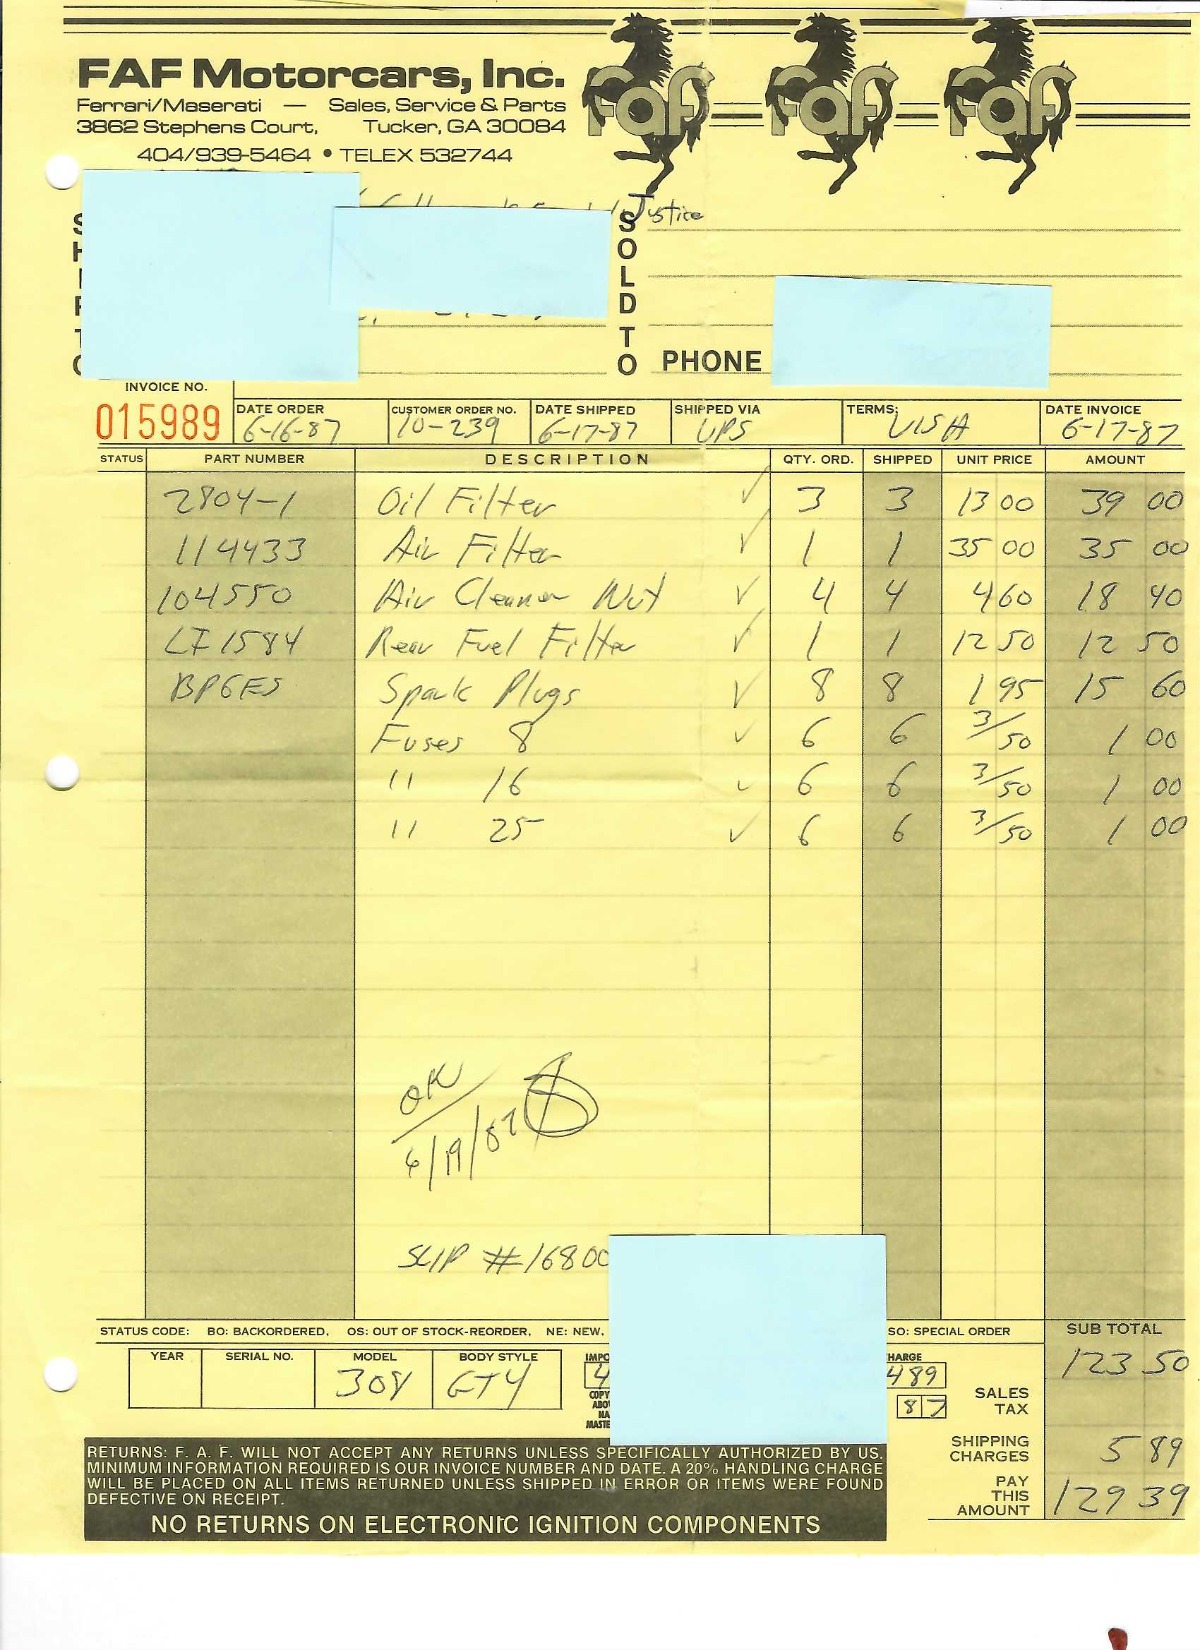 FAF Motorcars, Inc.
Ferrari/Maserati — Sales, Service & Parts
3862 Stephens Court, Tucker, GA 30084
404/939-5464 • TELEX 532744
Faf Faf Faf
Justice
SOLD TO
PHONE
INVOICE NO. 015989
DATE ORDER 6-16-87
CUSTOMER ORDER NO. 10-239
DATE SHIPPED 6-17-87
SHIPPED VIA UPS
TERMS: VISA
DATE INVOICE 6-17-87
STATUS PART NUMBER DESCRIPTION QTY. ORD. SHIPPED UNIT PRICE AMOUNT
2804-1 Oil Filter ✓ 3 3 13 00 39 00
114433 Air Filter ✓ 1 1 35 00 35 00
104550 Air Cleaner Nut ✓ 4 4 4 60 18 40
LF1584 Rear Fuel Filter ✓ 1 1 12 50 12 50
BP6ES Spark Plugs ✓ 8 8 1 95 15 60
Fuses 8 ✓ 6 6 3/50 1 00
" 16 ✓ 6 6 3/50 1 00
" 25 ✓ 6 6 3/50 1 00
OK
6/19/87
SLIP #16800
STATUS CODE: BO: BACKORDERED, OS: OUT OF STOCK-REORDER, NE: NEW, SO: SPECIAL ORDER
SUB TOTAL 123 50
YEAR SERIAL NO. MODEL 308 BODY STYLE GT4
489
87
SALES TAX
SHIPPING CHARGES 5 89
PAY THIS AMOUNT 129 39
RETURNS: F. A. F. WILL NOT ACCEPT ANY RETURNS UNLESS SPECIFICALLY AUTHORIZED BY US.
MINIMUM INFORMATION REQUIRED IS OUR INVOICE NUMBER AND DATE. A 20% HANDLING CHARGE
WILL BE PLACED ON ALL ITEMS RETURNED UNLESS SHIPPED IN ERROR OR ITEMS WERE FOUND
DEFECTIVE ON RECEIPT.
NO RETURNS ON ELECTRONIC IGNITION COMPONENTS